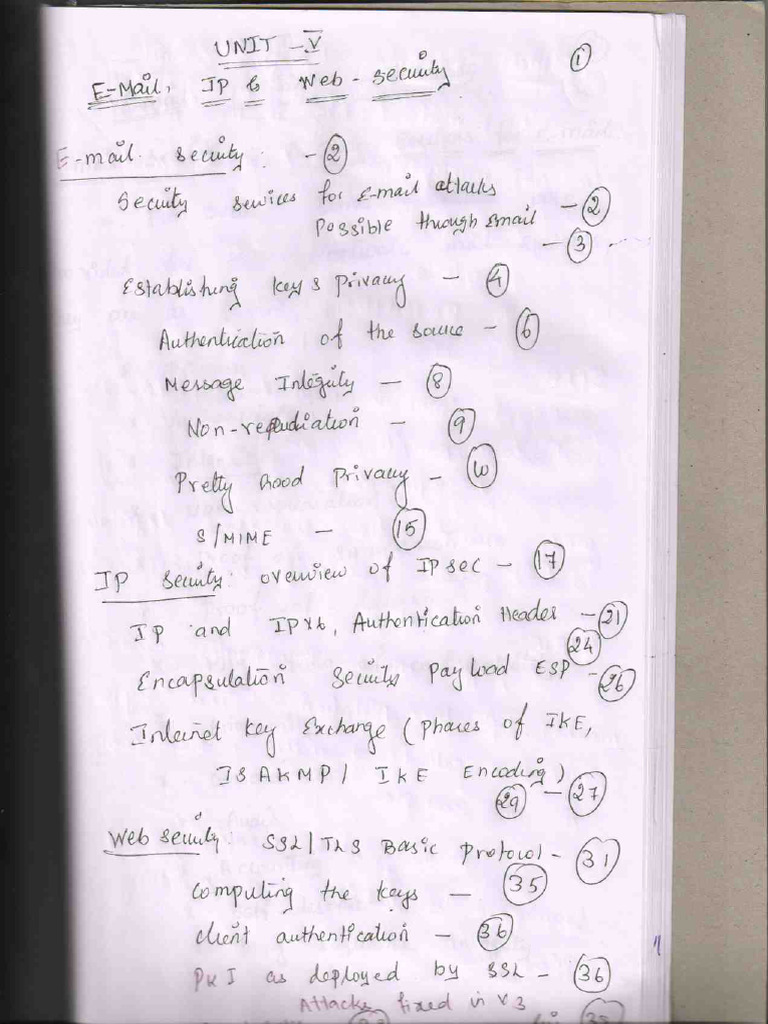 UNIT - V
①
E-Mail, IP & Web - Security
E-mail Security: - ②
Security Services for E-mail attacks
Possible through Email - ②
- ③
Establishing keys Privacy - ④
Authentication of the source - ⑥
Message Integrity - ⑧
Non-repudiation - ⑨
Pretty Good Privacy - ⑩
S/MIME - ⑮
IP Security: overview of IPSec - ⑰
IP and IPV6, Authentication Header - ㉑
㉔
Encapsulation Security Payload ESP - ㉖
Internet Key Exchange (phases of IKE,
ISAKMP/ IKE Encoding)
㉙ - ㉗
Web Security: SSL/TLS Basic Protocol - ㉛
Computing the keys - ㉟
client authentication - ㊱
PKI as deployed by SSL - ㊱
Attacks fixed in v3